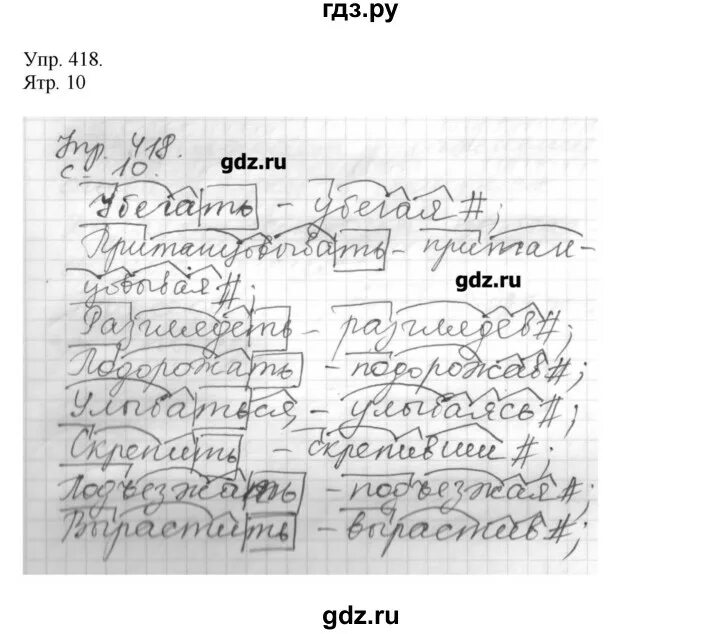 гдз.ру
Упр. 418.
Ятр. 10
Упр. 418.
с - 10.
gdz.ru
Убегать - убегая #;
Пританцовывать - притан-
цовывая #;
gdz.ru
Разглядеть - разглядев #;
Подорожать - подорожав #;
Улыбаться, - улыбаясь #;
Скрепить - скрепивши #;
Подъезжать - подъезжая #;
Вырастить - вырастив #;
gdz.ru